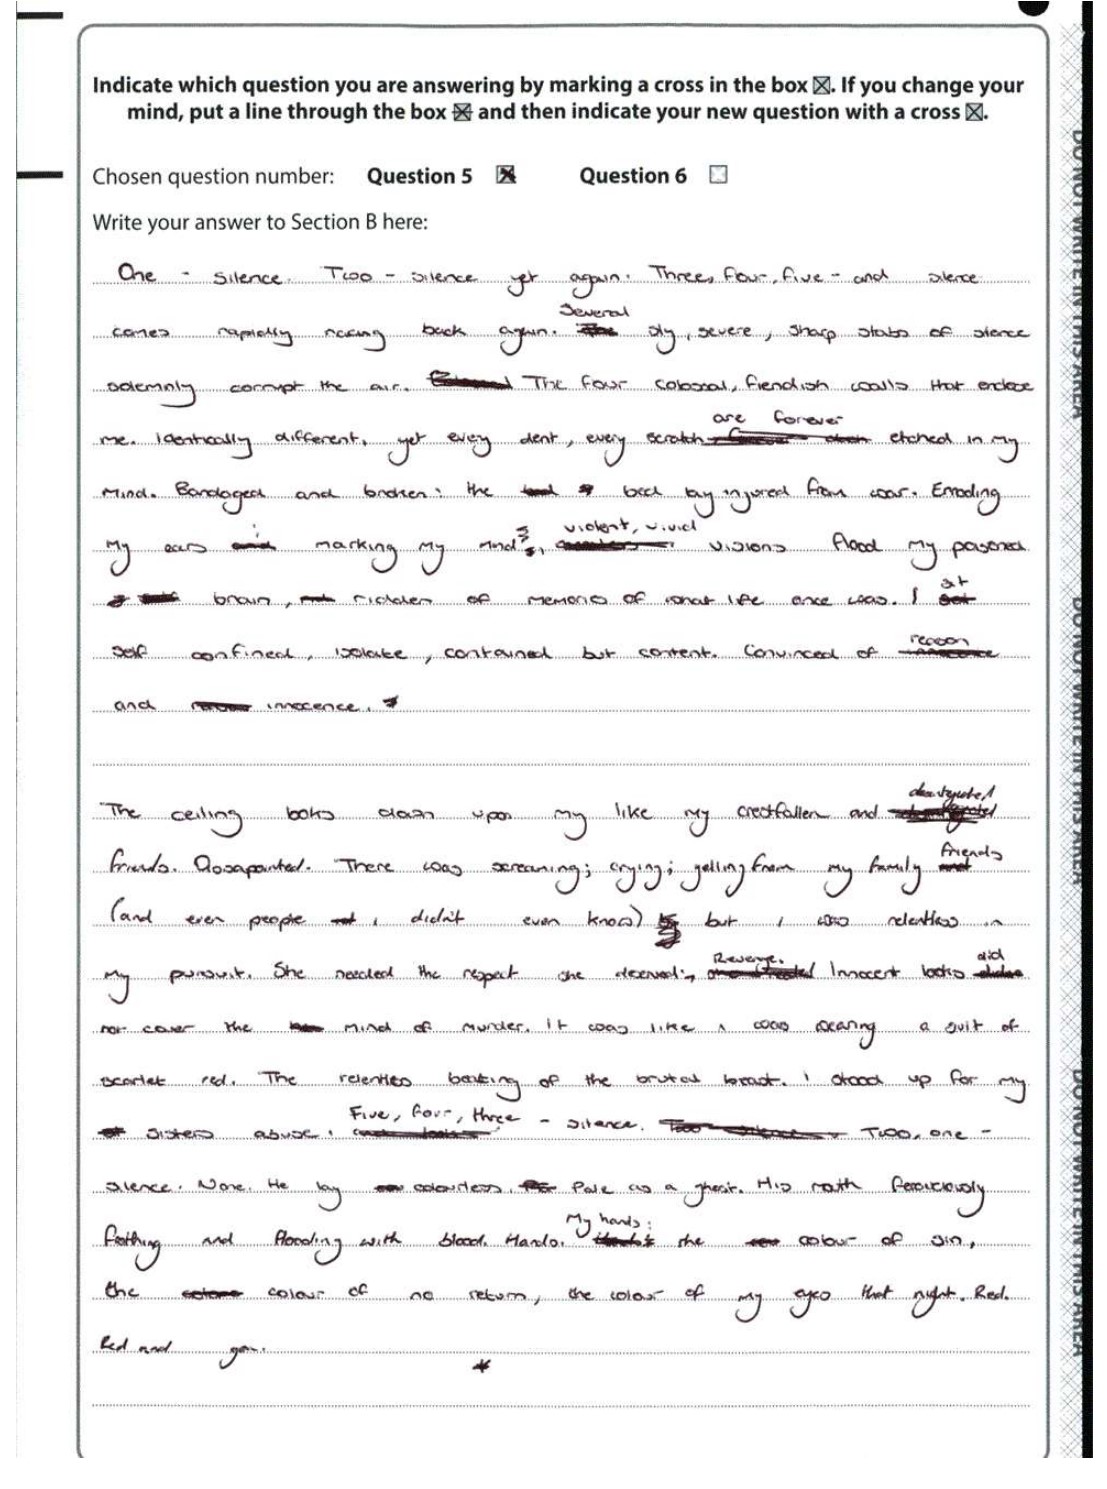 Indicate which question you are answering by marking a cross in the box ☒. If you change your
mind, put a line through the box and then indicate your new question with a cross ☒.
Chosen question number: Question 5 ☒ Question 6 ☐
Write your answer to Section B here:
One - silence. Two - silence yet again. Three, four, five - and silence
comes rapidly racing back again. Several sly, severe, sharp stabs of silence
solemnly corrupt the air. The four colossal, fiendish walls that enclose
me. Identically different, yet every dent, every scratch are forever etched in my
mind. Bandaged and broken: the bed lay injured from war. Erroding
my ears marking my mind; violent, vivid visions flood my poisoned
brain, ridden of memories of what life once was. I sat
self confined, isolate, contained but content. Convinced of reason
and innocence. *
The ceiling looks down upon my like my crestfallen and
friends. Dissapointed. There was screaming; crying; yelling from my family friends
(and even people I didn't even know) but I was relentless in
my pursuit. She needed the respect she deserved; Revenge. Innocent looks did
not cover the mind of murder. It was like I was wearing a suit of
scarlet red. The relentless beating of the brutal beast. I stood up for my
sisters abuse. Five, four, three - silence. Two, one -
silence. None. He lay colourless. Pale as a ghost. His mouth ferouciously
frothing and flooding with blood. Hands. My hands: the colour of sin,
the colour of no return, the colour of my eyes that night. Red.
Red and
*
DO NOT WRITE IN THIS AREA
DO NOT WRITE IN THIS AREA
DO NOT WRITE IN THIS AREA